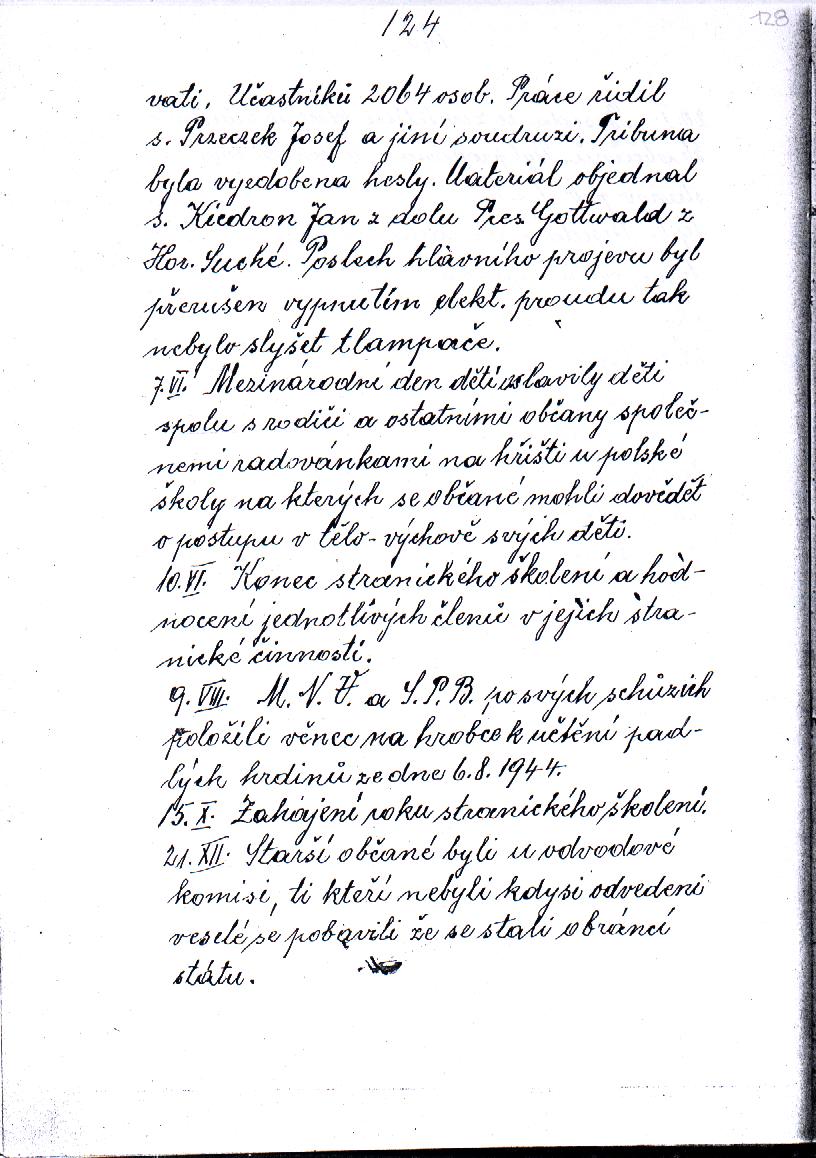 128
124
vati. Učastníků 2064 osob. Práce řídil
s. Przeczek Josef a jiní soudruzi. Tribuna
byla vyzdobena hesly. Materiál objednal
s. Kiedron Jan z dolu Pres Gottwald z
Hor. Suché. Poslech hlavního projevu byl
přerušen vypnutím elekt. proudu tak
nebylo slyšet tlampače.
7.VI. Mezinárodní den dětí oslavily děti
spolu s rodiči a ostatními občany společ-
nemi radovánkami na hřišti u polské
školy na kterých se občané mohli dovědět
o postupu v tělo-výchově svých děti.
10.VI. Konec stranického školení a hod-
nocení jednotlívých členů v jejich stra-
nické činností.
9. VIII. M. N. V. a S. P. B. po svých schůzích
položili věnec na hrobce k učtění pad-
lých hrdinů ze dne 6.8. 1944.
15. X. Zahájení roku stranického školení.
21. XII. Starší občané byli u odvodové
komisi, ti kteří nebyli kdysi odvedeni
veselé se pobavili že se stali obránci
státu.